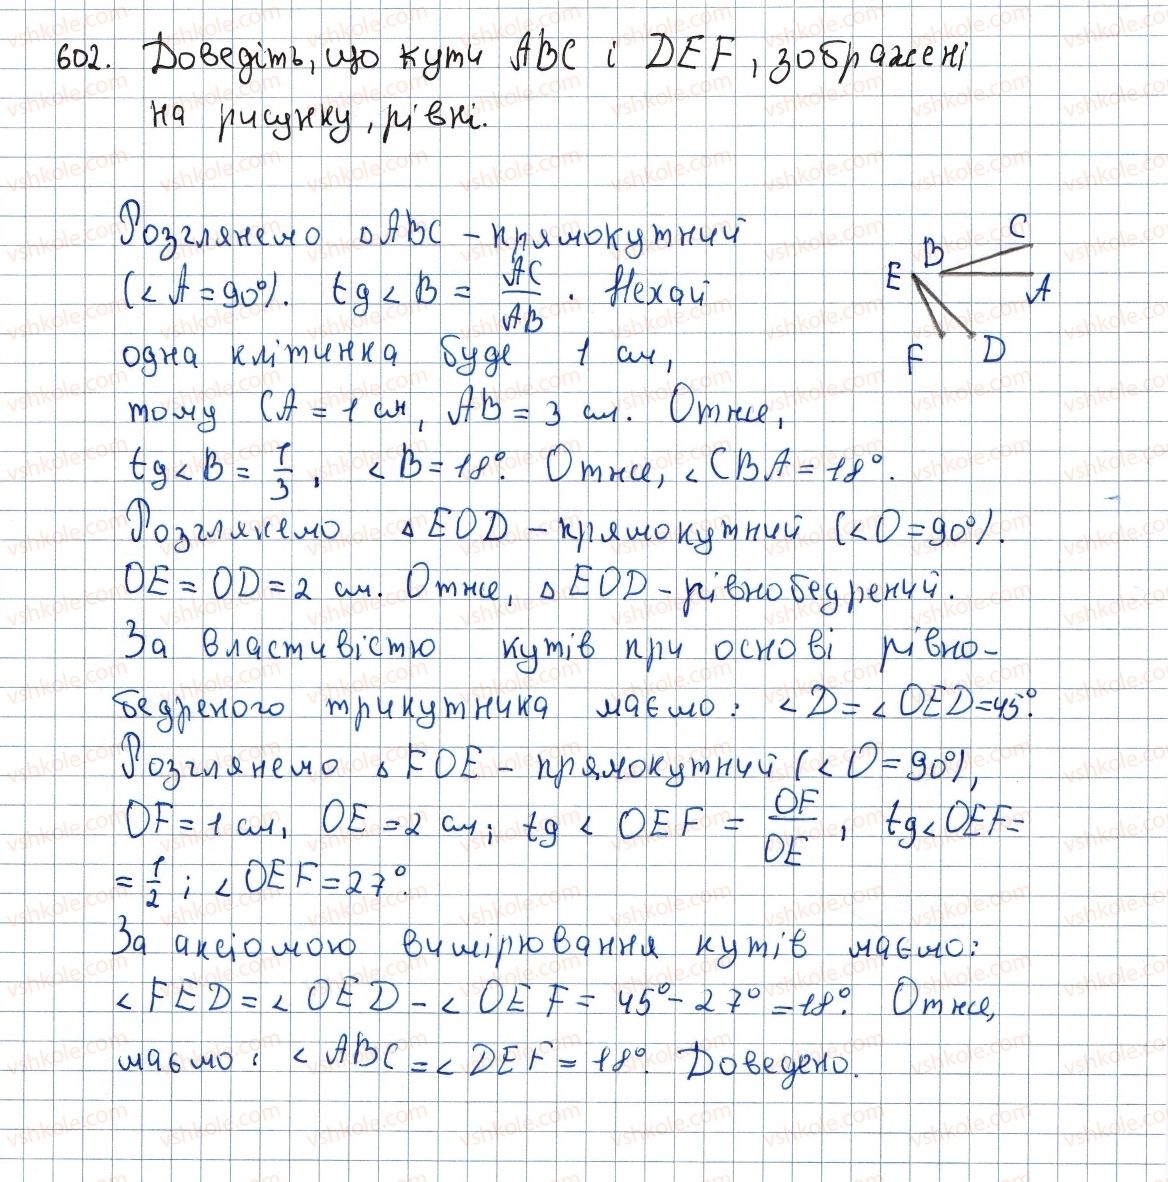 602. Доведіть, що кути ABC і DEF, зображені
на рисунку, рівні.
Розглянемо △ABC – прямокутний
(∠A = 90°). tg∠B = AC/AB. Нехай
одна клітинка буде 1 см,
тому CA = 1 см, AB = 3 см. Отже,
tg∠B = 1/3, ∠B = 18°. Отже, ∠CBA = 18°.
Розглянемо △EOD – прямокутний (∠O = 90°).
OE = OD = 2 см. Отже, △EOD – рівнобедрений.
За властивістю кутів при основі рівно-
бедреного трикутника маємо: ∠D = ∠OED = 45°.
Розглянемо △FOE – прямокутний (∠O = 90°),
OF = 1 см, OE = 2 см; tg∠OEF = OF/OE, tg∠OEF =
= 1/2; ∠OEF = 27°.
За аксіомою вимірювання кутів маємо:
∠FED = ∠OED – ∠OEF = 45° – 27° = 18°. Отже,
маємо: ∠ABC = ∠DEF = 18°. Доведено.
C
B
E
A
F
D
vshkole.com